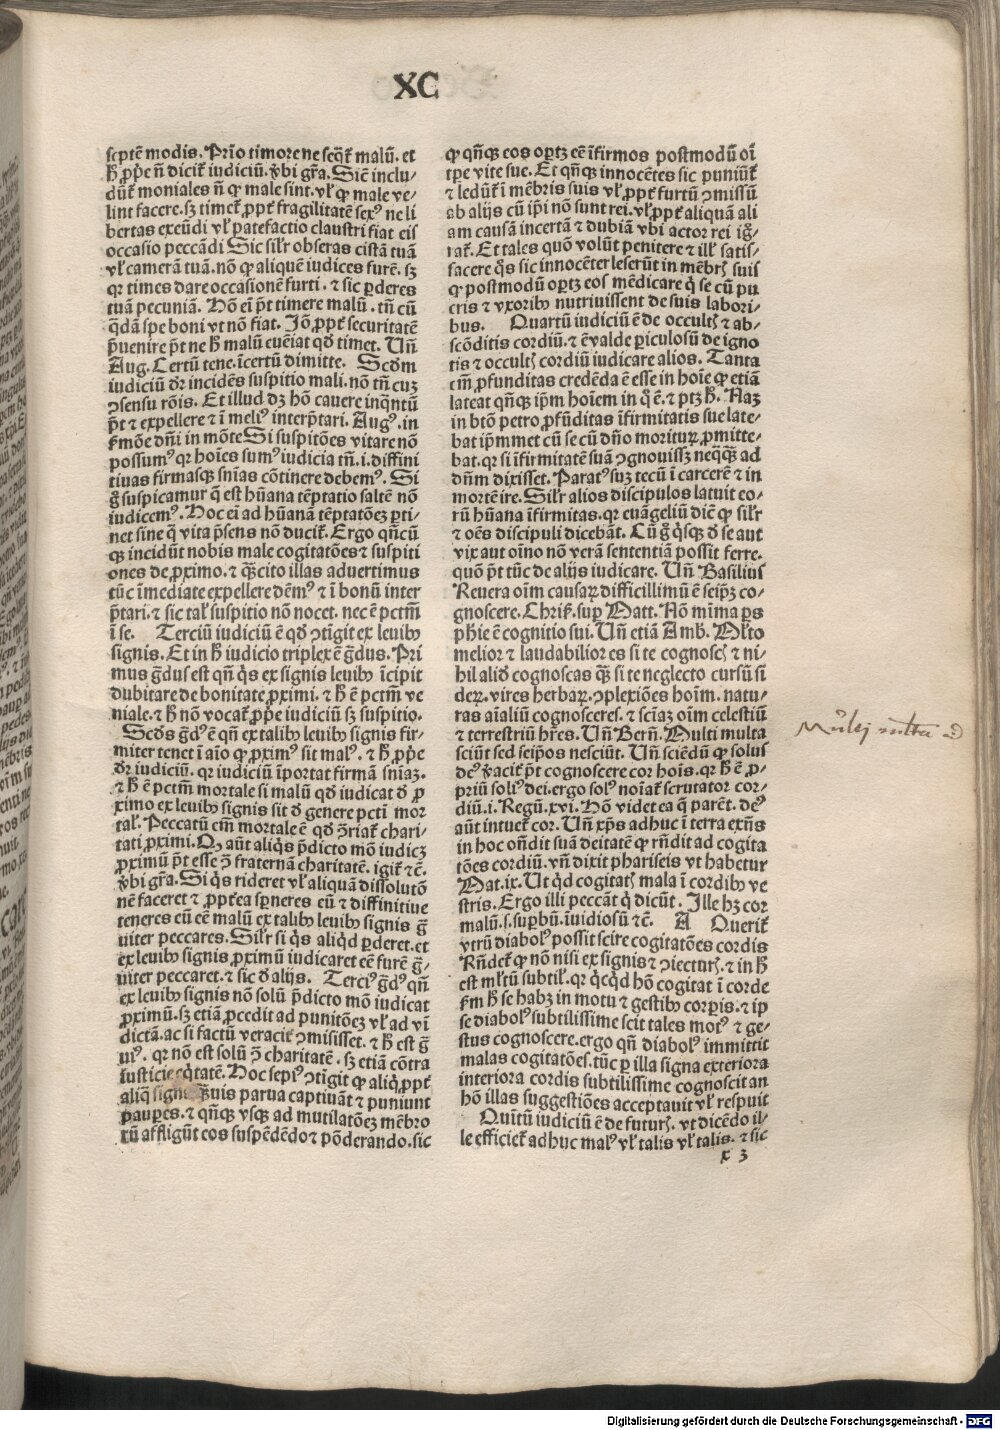 XC
septē modis. Prīo timore ne seq̄t᷑ malū. et
ꝓp̄e n̄ dicit᷑ iudiciū. v̄bi gr̄a. Siē inclu-
dūt᷑ moniales n̄ ꝙ male sint. vl᷑ ꝙ male ve-
lint facere. sꝫ timet᷑ ꝓpt᷑ fragilitatē sexꝰ ne li
bertas exeūdi vl᷑ patefactio claustri fiat eis
occasio peccādi Sic silr᷑ obseras cistā tuā
vl᷑ camerā tuā. nō ꝙ aliquē iudices furē. sꝫ
qr times dare occasionē furti. ⁊ sic ꝑderes
tuā pecuniā. Hō eī p̄t timere malū. tn̄ cū
q̄dā spe boni vt nō fiat. Jō ꝓpt᷑ securitatē
p̄uenire p̄t ne ħ malū eueīat qd̄ timet. Un̄
Aug. Certū tene. īcertū dimitte. Scd̄m
iudiciū dr᷑ incidēs suspitio mali. nō tn̄ cuꝫ
ↄsensu rōis. Et illud dꝫ hō cauere inqn̄tū
p̄t ⁊ expellere ⁊ ī meliꝰ interp̄tari. Augꝰ. in
s᷑mōe dn̄i in mōte Si suspitōes vitare nō
possumꝰ qr hoīes sumꝰ iudicia tn̄ .i. diffini
tiuas firmasqꝫ sn̄ias cōtinere debemꝰ. Si
g̊ suspicamur q̄ est hūana tēptatio saltē nō
iudicemꝰ. Hoc eī ad hūanā tēptatōeꝫ ꝑti-
net sine q̄ vita p̄sens nō ducit᷑. Ergo qn̄cū
qꝫ incidūt nobis male cogitatōes ⁊ suspiti
ones de ꝓximo. ⁊ qꝫcito illas aduertimus
tūc īmediate expellere dēmꝰ ⁊ ī bonū inter
p̄tari. ⁊ sic tal᷑ suspitio nō nocet. nec ē pctm̄
ī se. Terciū iudiciū ē qd̄ ↄtīgit ex leuibꝰ
signis. Et in ħ iudicio triplex ē g̊dus. Pri
mus g̊dus est qn̄ q̊s ex signis leuibꝰ īcipit
dubitare de bonitate ꝓximi. ⁊ ħ ē pctm̄ ve
niale. ⁊ ħ nō vocat᷑ ꝓp̄e iudiciū sꝫ suspitio.
Scd̄s g̊dꝰ ē qn̄ ex talibꝰ leuibꝰ signis fir-
miter tenet ī aīo ꝙ ꝓximꝰ sit malꝰ. ⁊ ħ ꝓp̄e
dr᷑ iudiciū. qr iudiciū īportat firmā sn̄iaꝫ.
⁊ ħ ē pctm̄ mortale si malū qd̄ iudicat d̄ ꝓ
ximo ex leuibꝰ signis sit d̄ genere pcti mor
tal᷑. Peccatū em̄ mortale ē qd̄ ↄ̄riat᷑ chari-
tati ꝓximi. Q aūt aliq̊s p̄dicto mō iudicꝫ
ꝓximū p̄t esse ↄ̄ fraternā charitatē. igit᷑ ⁊c̄.
v̄bi gr̄a. Si q̊s rideret vl᷑ aliquā dissolutō
nē faceret ⁊ ꝓpt᷑ea sꝑneres eū ⁊ diffinitiue
teneres eū eē malū ex talibꝰ leuibꝰ signis g̊
uiter peccares. Silr᷑ si q̊s aliq̊d ꝑderet. et
ex leuibꝰ signis ꝓximū iudicaret eē furē g̊-
uiter peccaret. ⁊ sic d̄ alijs. Terciꝰ g̊dꝰ qn̄
ex leuibꝰ signis nō solū p̄dicto mō iudicat
ꝓximū. sꝫ etiā ꝓcedit ad punitōeꝫ vl᷑ ad vī
dictā. ac si factū veracit᷑ ↄmisisset. ⁊ ħ est g̊
uiꝰ. qr nō est solū ↄ̄ charitatē. sꝫ etiā cōtra
iusticie eq̄tatē. Hoc sepiꝰ ↄtīgit ꝙ aliq̊ ꝓpt᷑
aliq̄ signa q̄uis parua captiuāt ⁊ puniunt
pauꝑes. ⁊ qn̄qꝫ vsqꝫ ad mutilatōeꝫ mēbro
rū affligūt eos suspēdēdo ⁊ pōderando. sic
ꝙ qn̄qꝫ eos oꝑtꝫ eē īfirmos postmodū oī
tꝑe vite sue. Et qn̄qꝫ innocētes sic puniūt᷑
⁊ ledūt᷑ ī mēbris suis vl᷑ ꝓpt᷑ furtū ↄmissū
ab alijs cū ip̄i nō sunt rei. vl᷑ ꝓpt᷑ aliquā ali
am causā incertā ⁊ dubiā vbi actor rei ig̊-
rat᷑. Et tales quō volūt penitere ⁊ ill᷑ satis-
facere q̊s sic innocēter leserūt in mēbrꝭ suis
ꝙ postmodū oꝑtꝫ eos mēdicare q̊ se cū pu
eris ⁊ vxoribꝰ nutriuissent de suis labori-
bus. Quartū iudiciū ē de occultꝭ ⁊ ab-
scōditis cordiū. ⁊ ē valde ꝑiculosū de igno
tis ⁊ occultꝭ cordiū iudicare alios. Tanta
em̄ ꝓfunditas credēda ē esse in hoīe ꝙ etiā
lateat qn̄qꝫ ip̄m hoīem in q̊ ē. ⁊ ptꝫ ħ. Naꝫ
in btō petro ꝓfūditas īfirmitatis sue late-
bat ip̄mmet cū se cū dn̄o moriturꝝ ꝓmitte-
bat. qr si īfirmitatē suā ↄgnouissꝫ neqq̄ꝫ ad
dn̄m dixisset. Paratꝰ suꝫ tecū ī carcerē ⁊ in
mortē ire. Silr᷑ alios discipulos latuit eo-
rū hūana īfirmitas. qr euāgeliū diē ꝙ silr᷑
⁊ oēs discipuli dicebāt. Cū g̊ q̊sqꝫ d̄ se aut
vix aut oīno nō verā sententiā possit ferre.
quō p̄t tūc de alijs iudicare. Un̄ Basilius
Reuera oīm causaꝝ difficillimū ē seip̄ꝫ co-
gnoscere. Chriſ. suꝑ Matt. Nō mīma ꝑs
ph̄ie ē cognitio sui. Un̄ etiā Amb. Ml᷑to
melior ⁊ laudabilior es si te cognoscꝭ ⁊ ni-
hil alid̄ cognoscas q̄ꝫ si te neglecto cursū si
deꝝ. vires herbaꝝ. ↄplexiōes hoīm. natu-
ras aīaliū cognosceres. ⁊ scīaꝫ oīm celestiū
⁊ terrestriū hr̄es. Un̄ Bern̄. Multi multa
sciūt sed seip̄os nesciūt. Un̄ sciendū ꝙ solus
deꝰ v̄acit᷑ p̄t cognoscere cor hoīs. qr ħ ē ꝓ-
priū soliꝰ dei. ergo solꝰ noīat᷑ scrutator cor-
diū .i. Regū. xvi. Hō videt ea q̄ parēt. deꝰ
aūt intuet᷑ cor. Un̄ xp̄s adhuc ī terra exn̄s
in hoc on̄dit suā deitatē ꝙ rn̄dit ad cogita
tōes cordiū. vn̄ dixit phariseis vt habetur
Mat. ix. Ut q̊d cogitatꝭ mala ī cordibꝰ ve
stris. Ergo illi peccāt q̊ dicūt. Ille hꝫ cor
malū .s. suꝑbū. īuidiosū ⁊c̄. A Querit᷑
vtrū diabolꝰ possit scire cogitatōes cordis
Rn̄det᷑ ꝙ nō nisi ex signis ⁊ ↄiecturꝭ. ⁊ in ħ
est ml᷑tū subtil᷑. qr q̊cq̊d hō cogitat ī corde
s᷑m ħ se habꝫ in motu ⁊ gestibꝰ corꝑis. ⁊ ip
se diabolꝰ subtilissime scit tales motꝰ ⁊ ge-
stus cognoscere. ergo qn̄ diabolꝰ immittit
malas cogitatōes. tūc ꝑ illa signa exteriora
interiora cordis subtilissime cognoscit an
hō illas suggestiōes acceptauit vl᷑ respuit
Quītū iudiciū ē de futurꝭ. vt dicēdo il-
le efficiet᷑ adhuc malꝰ vl᷑ talis vl᷑ talis. ⁊ sic
x 3
Digitalisierung gefördert durch die Deutsche Forschungsgemeinschaft - DFG